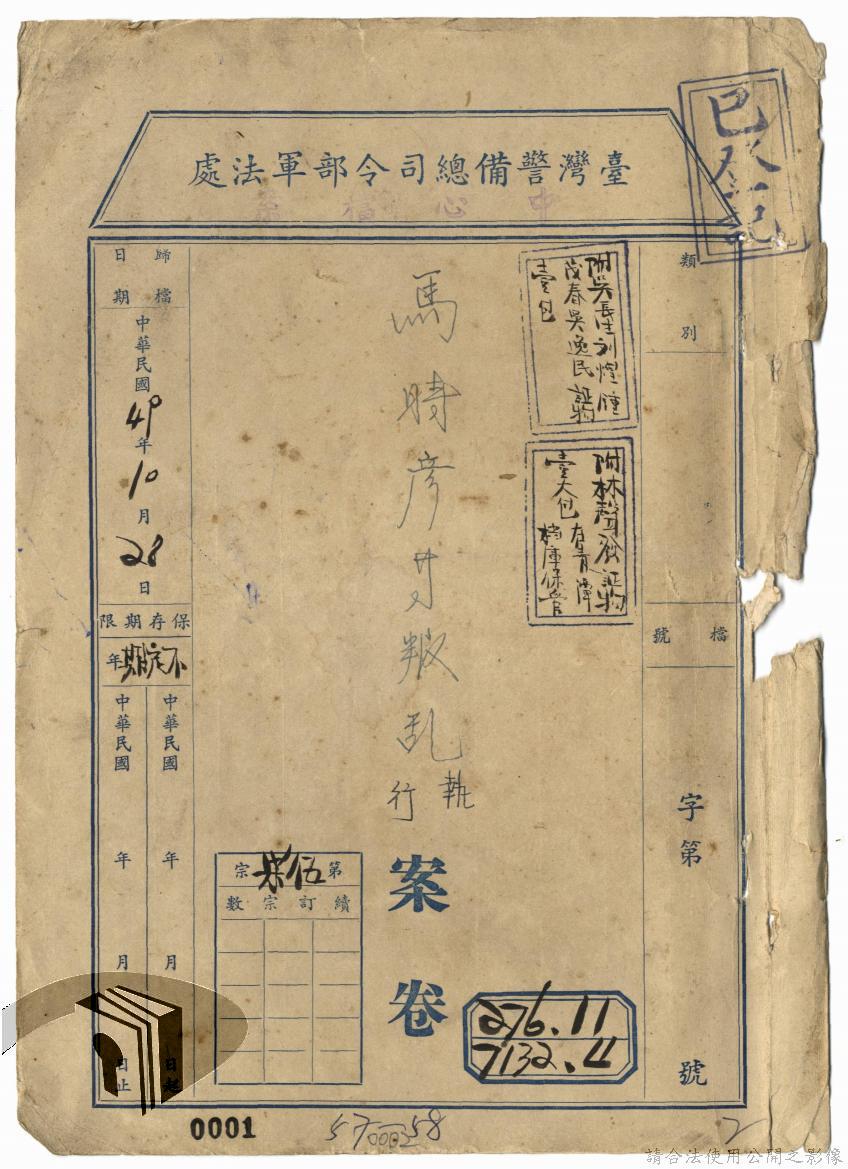 臺灣警備總司令部軍法處
中心檔案
已登記
類別
檔號
字第
號
附吳長生刘燈鐘
茂春吳逸民証物
壹包
附林聲發証物
壹大包存青潭
檔庫保管
馬時彥等叛乱
執行
案卷
第伍柒宗
續訂宗數
276.11
7132.4
歸檔日期
中華民國49年10月28日
保存期限
不定期年
中華民國 年 月 日起
中華民國 年 月 日止
0001
57
58
2
請合法使用公開之影像